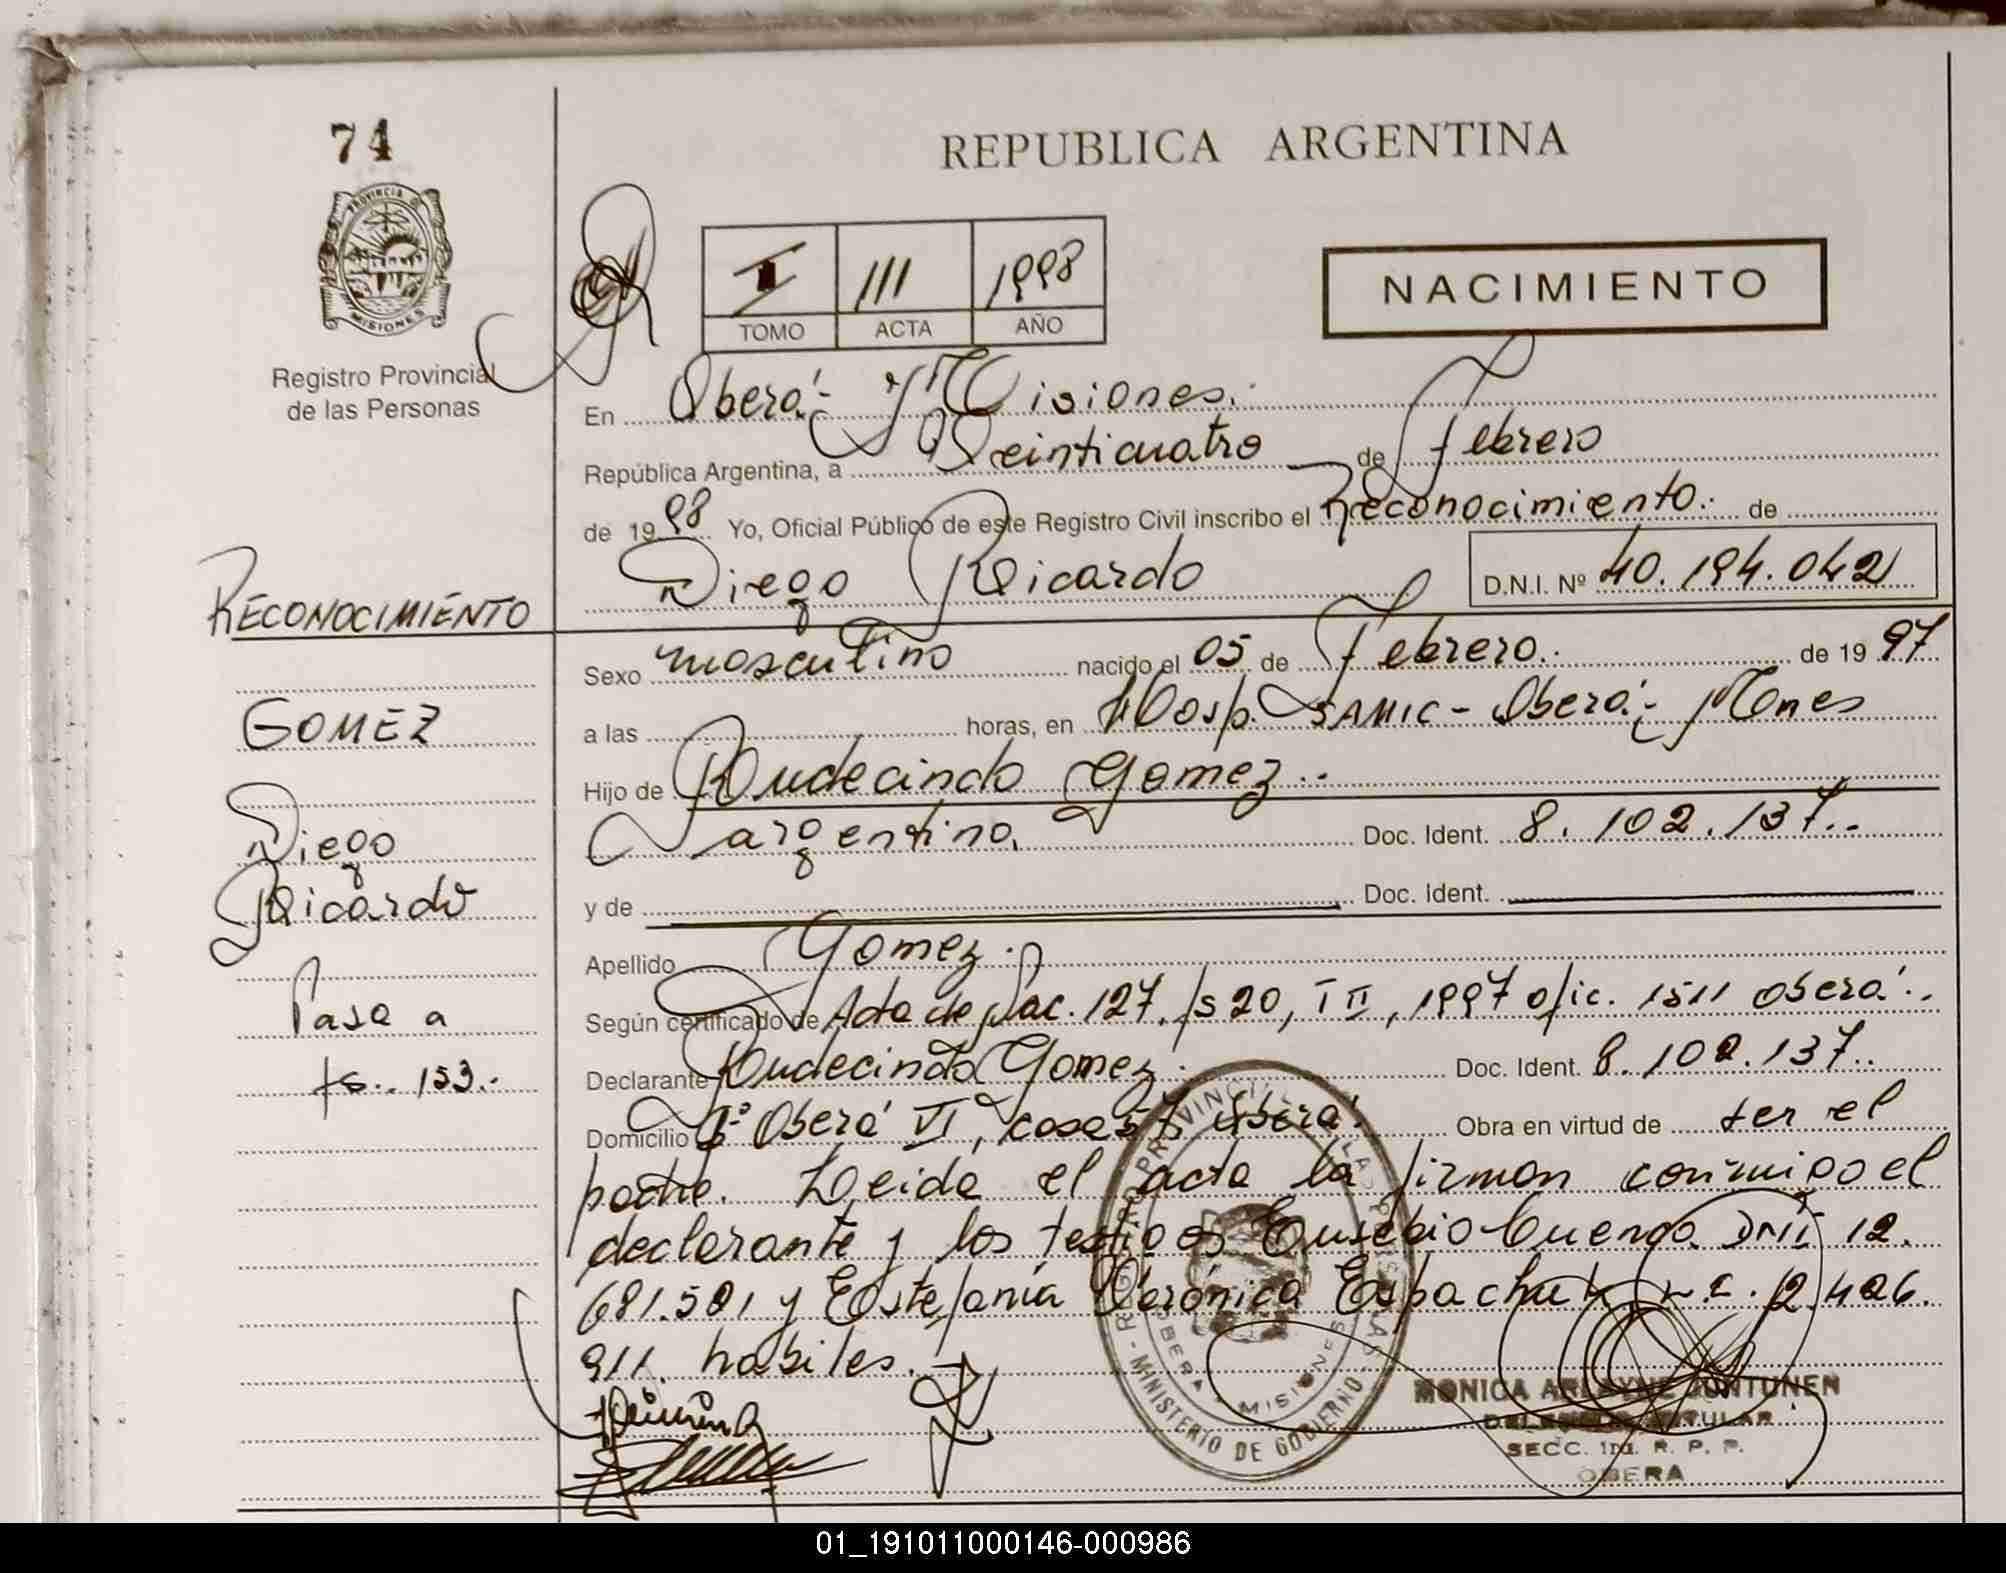 74
REPUBLICA ARGENTINA
PROVINCIA D
MISIONES
Registro Provincial
de las Personas
I 111 1998
TOMO ACTA AÑO
NACIMIENTO
En Oberá - Misiones.
República Argentina, a Veinticuatro de Febrero
de 1998 Yo, Oficial Público de este Registro Civil inscribo el Reconocimiento. de
Diego Ricardo D.N.I. Nº 40.194.042
RECONOCIMIENTO
Sexo masculino nacido el 05 de Febrero. de 1997
GOMEZ
a las horas, en Hosp. SAMIC - Oberá - Mnes
Hijo de Rudecindo Gomez.
Diego
argentino. Doc. Ident. 8.102.137.
Ricardo
y de Doc. Ident.
Apellido Gomez.
Pasa a
Según certificado de Acta de Nac. 127, fs 20, T II, 1997 ofic. 1511 Oberá.
fs. 153.
Declarante Rudecindo Gomez. Doc. Ident. 8.102.137.
Domicilio Bº Oberá VI, casa 57, Oberá. Obra en virtud de ser el
padre. Leida el acta la firman conmigo el
declarante y los testigos Eusebio Cuenga DNI 12.
681.501 y Estefanía Verónica Espachuk 2.426.
911. habiles.
REGISTRO PROVINCIAL DE LAS PERSONAS
OBERA MISIONES
MINISTERIO DE GOBIERNO
MONICA ARLAYNE JUNTUNEN
DELEGADA TITULAR
SECC. 1ra. R. P. P.
OBERA
01_191011000146-000986